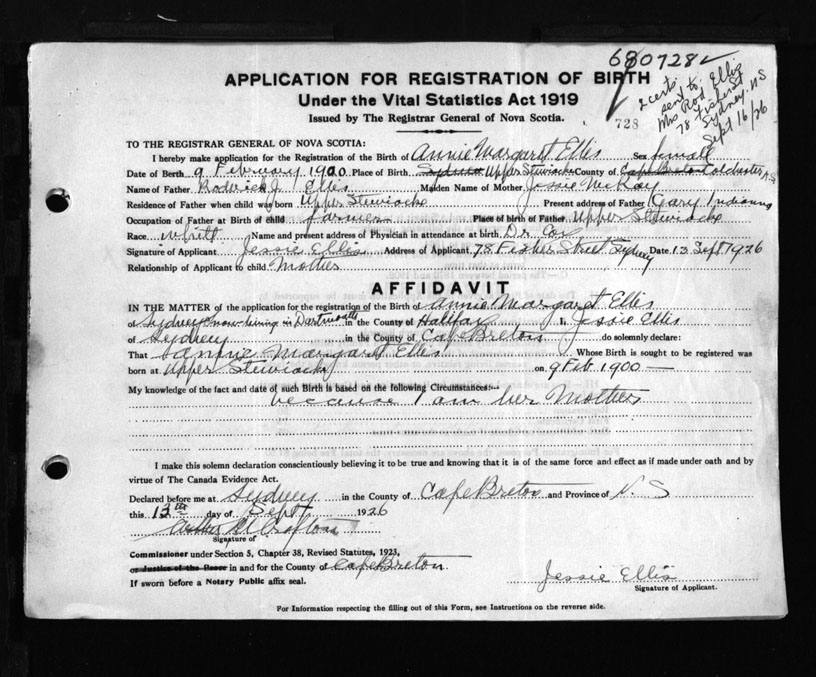 680728
2 certs.
sent to
Mrs Rod. Ellis
78 Fisher St
Sydney. NS
Sept 16/26
728
APPLICATION FOR REGISTRATION OF BIRTH
Under the Vital Statistics Act 1919
Issued by The Registrar General of Nova Scotia.
TO THE REGISTRAR GENERAL OF NOVA SCOTIA:
I hereby make application for the Registration of the Birth of Annie Margaret Ellis Sex female
Date of Birth 9 February 1900 Place of Birth Sydney Upper Stewiacke County of Cape Breton Colchester NS
Name of Father Roderick J Ellis Maiden Name of Mother Jessie McKay
Residence of Father when child was born Upper Stewiacke Present address of Father Gary Indianna
Occupation of Father at Birth of child farmer Place of birth of Father Upper Stewiacke
Race whitt Name and present address of Physician in attendance at birth Dr. Cox
Signature of Applicant Jessie Ellis Address of Applicant 78 Fisher Street Sydney Date 13 Sept 1926
Relationship of Applicant to child Mother
AFFIDAVIT
IN THE MATTER of the application for the registration of the Birth of Annie Margaret Ellis
of Sydney now living in Dartmouth in the County of Halifax I, Jessie Ellis
of Sydney in the County of Cape Breton do solemnly declare:
That Annie Margaret Ellis Whose Birth is sought to be registered was
born at Upper Stewiacke on 9 Feb. 1900
My knowledge of the fact and date of such Birth is based on the following Circumstances:—
because I am her Mother
I make this solemn declaration conscientiously believing it to be true and knowing that it is of the same force and effect as if made under oath and by
virtue of The Canada Evidence Act.
Declared before me at Sydney in the County of Cape Breton and Province of N. S
this 13th day of Sept 1926
Signature of
Commissioner under Section 5, Chapter 38, Revised Statutes, 1923,
or Justice of the Peace in and for the County of Cape Breton
If sworn before a Notary Public affix seal.
Jessie Ellis
Signature of Applicant.
For Information respecting the filling out of this Form, see Instructions on the reverse side.